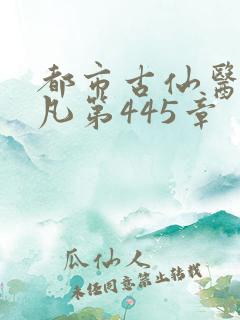 都市古仙醫
凡第445章
瓜仙人
未经同意禁止转载